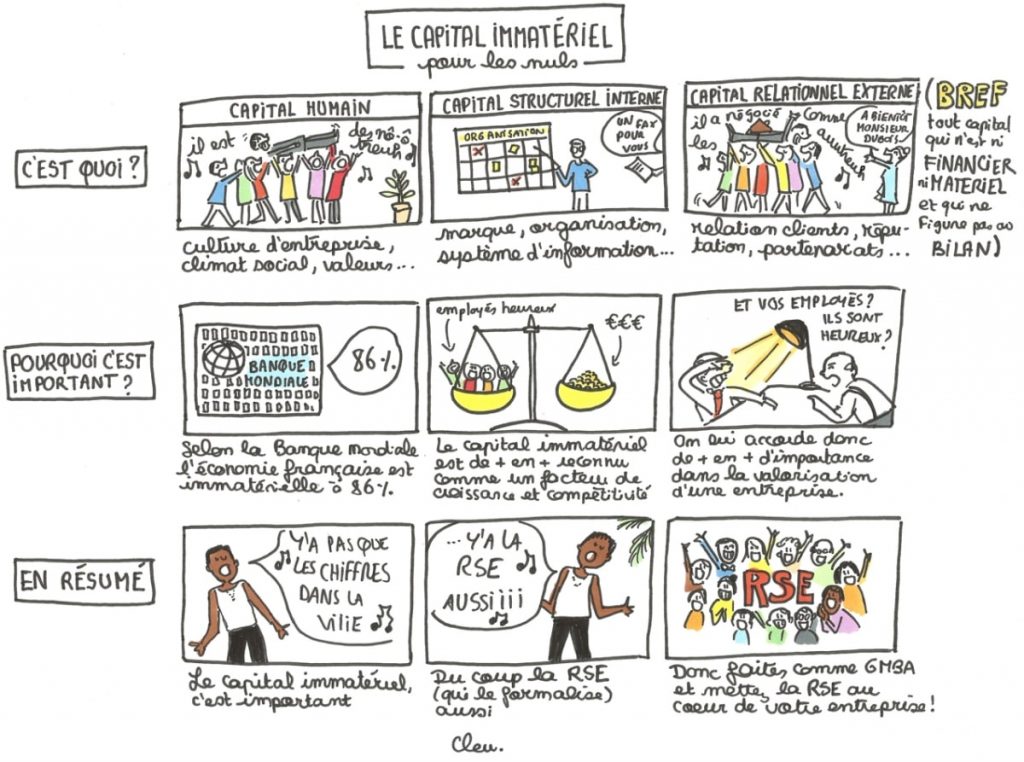 LE CAPITAL IMMATÉRIEL
pour les nuls
C'EST QUOI ?
CAPITAL HUMAIN
il est
des nô-ô
treuh
culture d'entreprise,
climat social, valeurs...
CAPITAL STRUCTUREL INTERNE
ORGANISATION
UN FAX
POUR
VOUS
marque, organisation,
système d'information...
CAPITAL RELATIONNEL EXTERNE
il a négocié
comme
les
autreuh
A BIENTÔT
MONSIEUR
DUBOIS
relation clients, répu-
tation, partenariats...
(BREF
tout capital
qui n'est ni
FINANCIER
ni MATERIEL
et qui ne
figure pas au
BILAN)
POURQUOI C'EST
IMPORTANT ?
BANQUE
MONDIALE
86%
Selon la Banque mondiale
l'économie française est
immatérielle à 86%.
employés heureux
€€€
Le capital immatériel
est de + en + reconnu
comme un facteur de
croissance et compétitivité
ET VOS EMPLOYÉS ?
ILS SONT
HEUREUX ?
On lui accorde donc
de + en + d'importance
dans la valorisation
d'une entreprise.
EN RÉSUMÉ
Y'A PAS QUE
LES CHIFFRES
DANS LA
VIIIE
Le capital immatériel,
c'est important
... Y'A LA
RSE
AUSSIiii
Du coup la RSE
(qui le formalise)
aussi
RSE
Donc faites comme GMBA
et mettez la RSE au
coeur de votre entreprise !
Cleu.